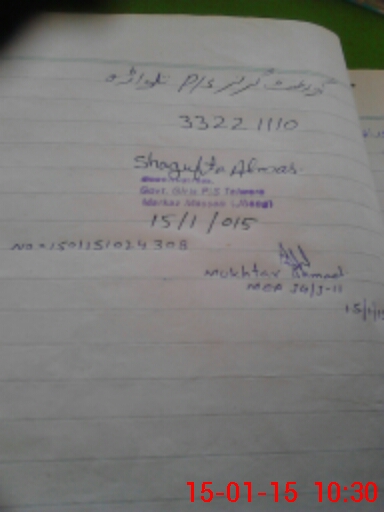 گورنمنٹ گرلز P/S تلواڑہ
33221110
Shagufta Almas.
Govt. Girls P/S Telwara
Markaz Massan (Jhang)
15/1/015
No = 1501151024308
Mukhtar Ahmad
MEA JG/J-11
15/1/15
15-01-15 10:30